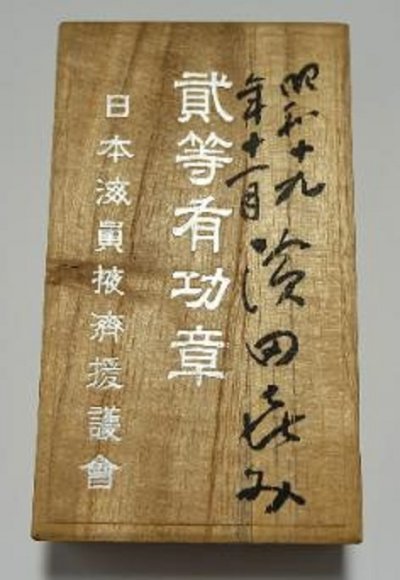 昭和十九
年十一月
濱田喜み
貳等有功章
日本海員掖濟援議會